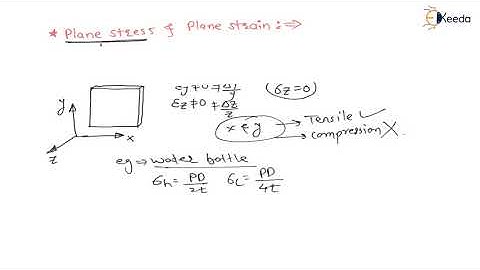 * Plane stress & Plane strain :⇒
Ekeeda
εy ≠ 0 ≠ Δy/y (σz = 0)
εz ≠ 0 ≠ Δz/z
x & y → Tensile ✓
→ compression X
y
x
z
eg → water bottle
σh = PD/2t σL = PD/4t